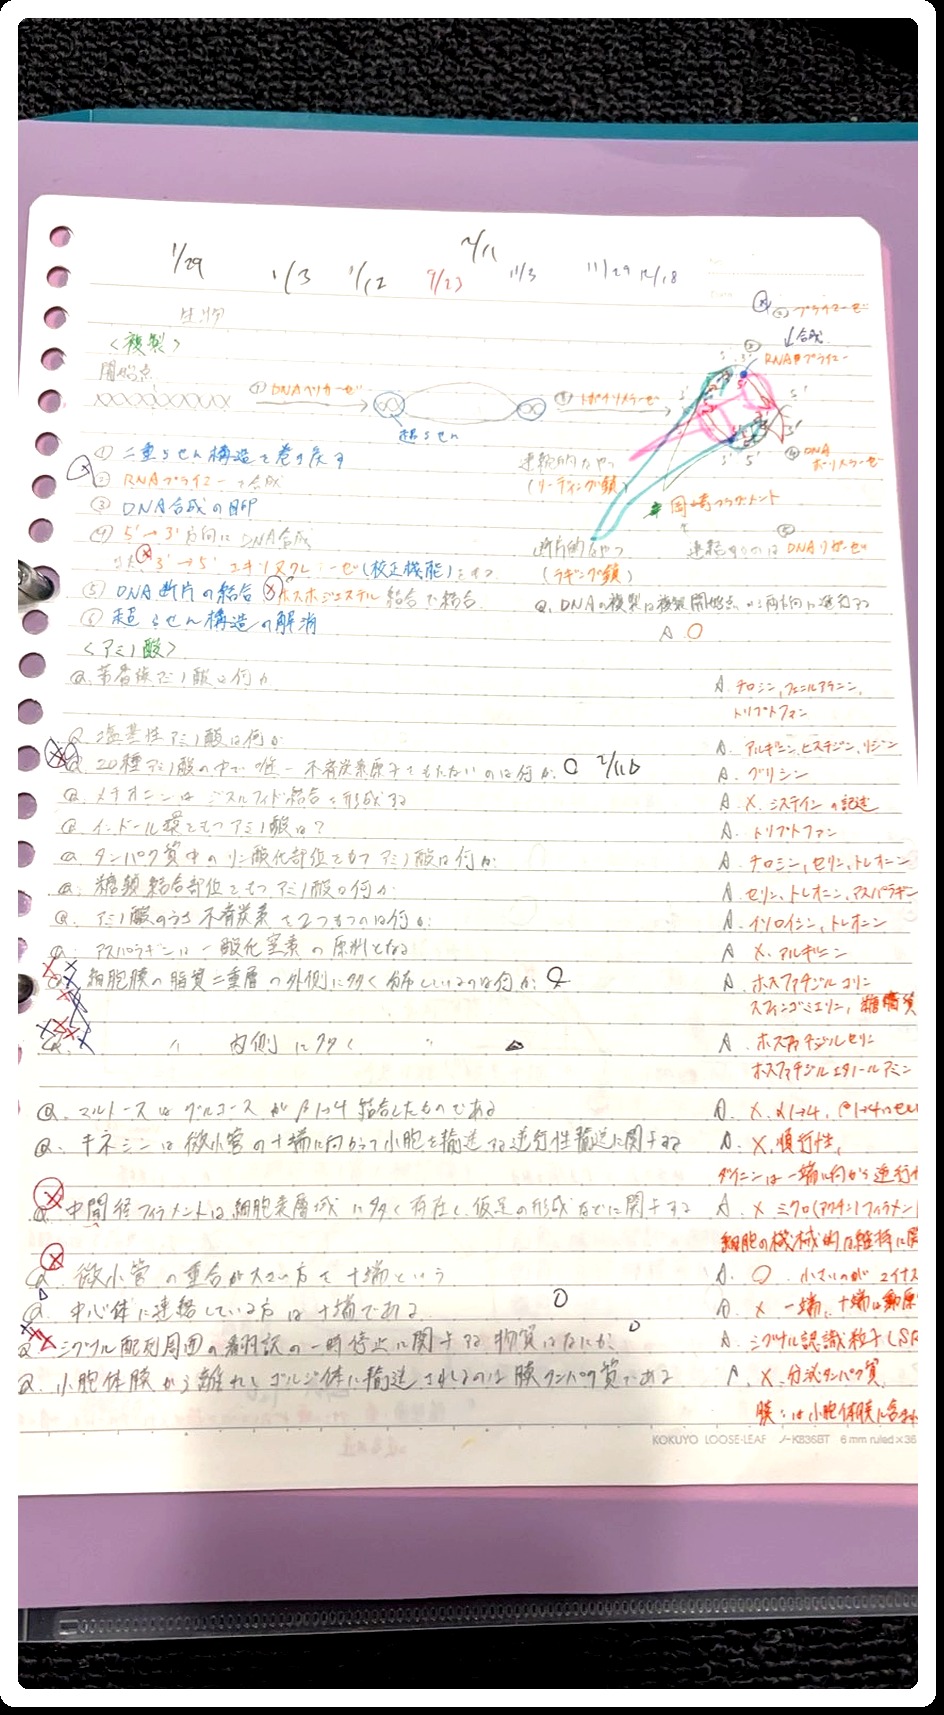 1/29 1/3 1/12 9/23 2/11 11/3 11/29 12/18
生物
<複製>
開始点
① DNAヘリカーゼ
超らせん
⑥ トポイソメラーゼ
② プライマーゼ
↓合成
RNAプライマー
3' 5'
④ DNA
ポリメラーゼ
連続的なやつ
(リーディング鎖)
岡崎フラグメント
断片的なやつ
(ラギング鎖)
⑤
連結するのは DNAリガーゼ
① 二重らせん構造を巻き戻す
② RNAプライマーを合成
③ DNA合成の目印
④ 5'→3'方向にDNA合成
3'→5'エキソヌクレアーゼ(校正機能)をもつ
⑤ DNA断片の結合 ホスホジエステル結合で結合
⑥ 超らせん構造の解消
Q. DNAの複製は複製開始点から両方向に進行する
A ○
<アミノ酸>
Q. 芳香族アミノ酸は何か
A. チロシン,フェニルアラニン,
トリプトファン
Q 塩基性アミノ酸は何か
A. アルギニン,ヒスチジン,リジン
Q. 20種アミノ酸の中で唯一不斉炭素原子をもたないのは何か. ○ 2/11
A. グリシン
Q. メチオニンはジスルフィド結合を形成する
A ×. システインの記述
Q. インドール環をもつアミノ酸は?
A. トリプトファン
Q. タンパク質中のリン酸化部位をもつアミノ酸は何か
A. チロシン,セリン,トレオニン
Q. 糖鎖結合部位をもつアミノ酸は何か
A. セリン,トレオニン,アスパラギン
Q. アミノ酸のうち不斉炭素を2つもつのは何か.
A. イソロイシン,トレオニン
Q. アスパラギンは一酸化窒素の原料となる
A ×. アルギニン
Q. 細胞膜の脂質二重層の外側に多く分布しているのは何か.
A. ホスファチジルコリン
スフィンゴミエリン, 糖脂質
Q. 〃 内側に多く 〃 △
A. ホスファチジルセリン
ホスファチジルエタノールアミン
Q. マルトースはグルコースがβ1→4結合したものである
A. ×. α1→4, β1→4はセル
Q. キネシンは微小管の+端に向かって小胞を輸送する逆行性輸送に関与する
A. ×, 順行性,
ダイニンは−端に向かう逆行
Q. 中間径フィラメントは細胞表層域に多く存在し、仮足の形成などに関与する
A × ミクロ(アクチン)フィラメント
細胞の機械的な維持に関
Q. 微小管の重合が大きい方を+端という
A. ○. 小さいのがマイナス
Q. 中心体に連絡している方は+端である ○
A × −端, +端は動原
Q. シグナル配列周囲の翻訳の一時停止に関与する物質はなにか. ○
A. シグナル認識粒子(SR
Q. 小胞体膜から離れてゴルジ体に輸送されるのは膜タンパク質である
A. ×. 分泌タンパク質
膜〃は小胞体膜に含まれ
KOKUYO LOOSE-LEAF ノ-K836BT 6 mm ruled×36